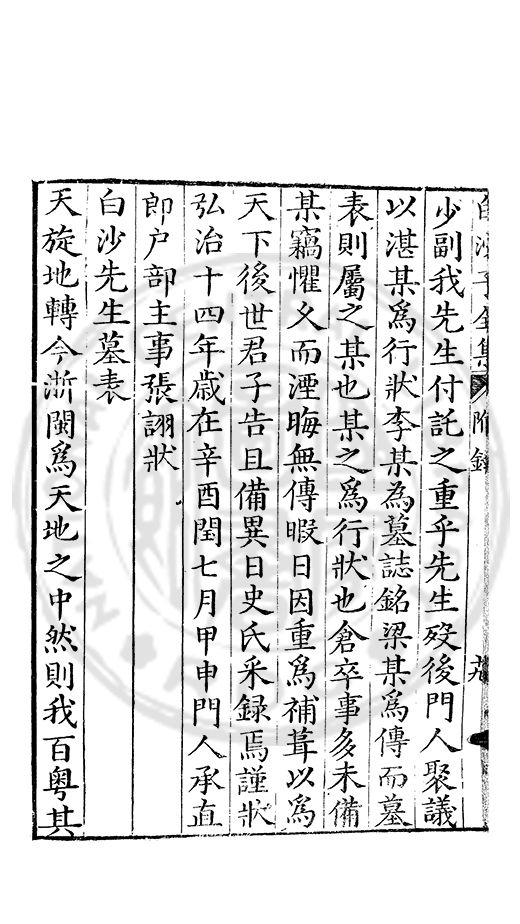 白沙子全集 附錄
少副我先生付託之重乎先生歿後門人聚議
以湛某爲行狀李某為墓誌銘梁某爲傳而墓
表則屬之某也某之爲行狀也倉卒事多未備
某竊懼久而湮晦無傳暇日因重爲補葺以爲
天下後世君子告且備異日史氏采録焉謹狀
弘治十四年歳在辛酉閏七月甲申門人承直
郎户部主事張詡狀
白沙先生墓表
天旋地轉今浙閩爲天地之中然則我百粤其